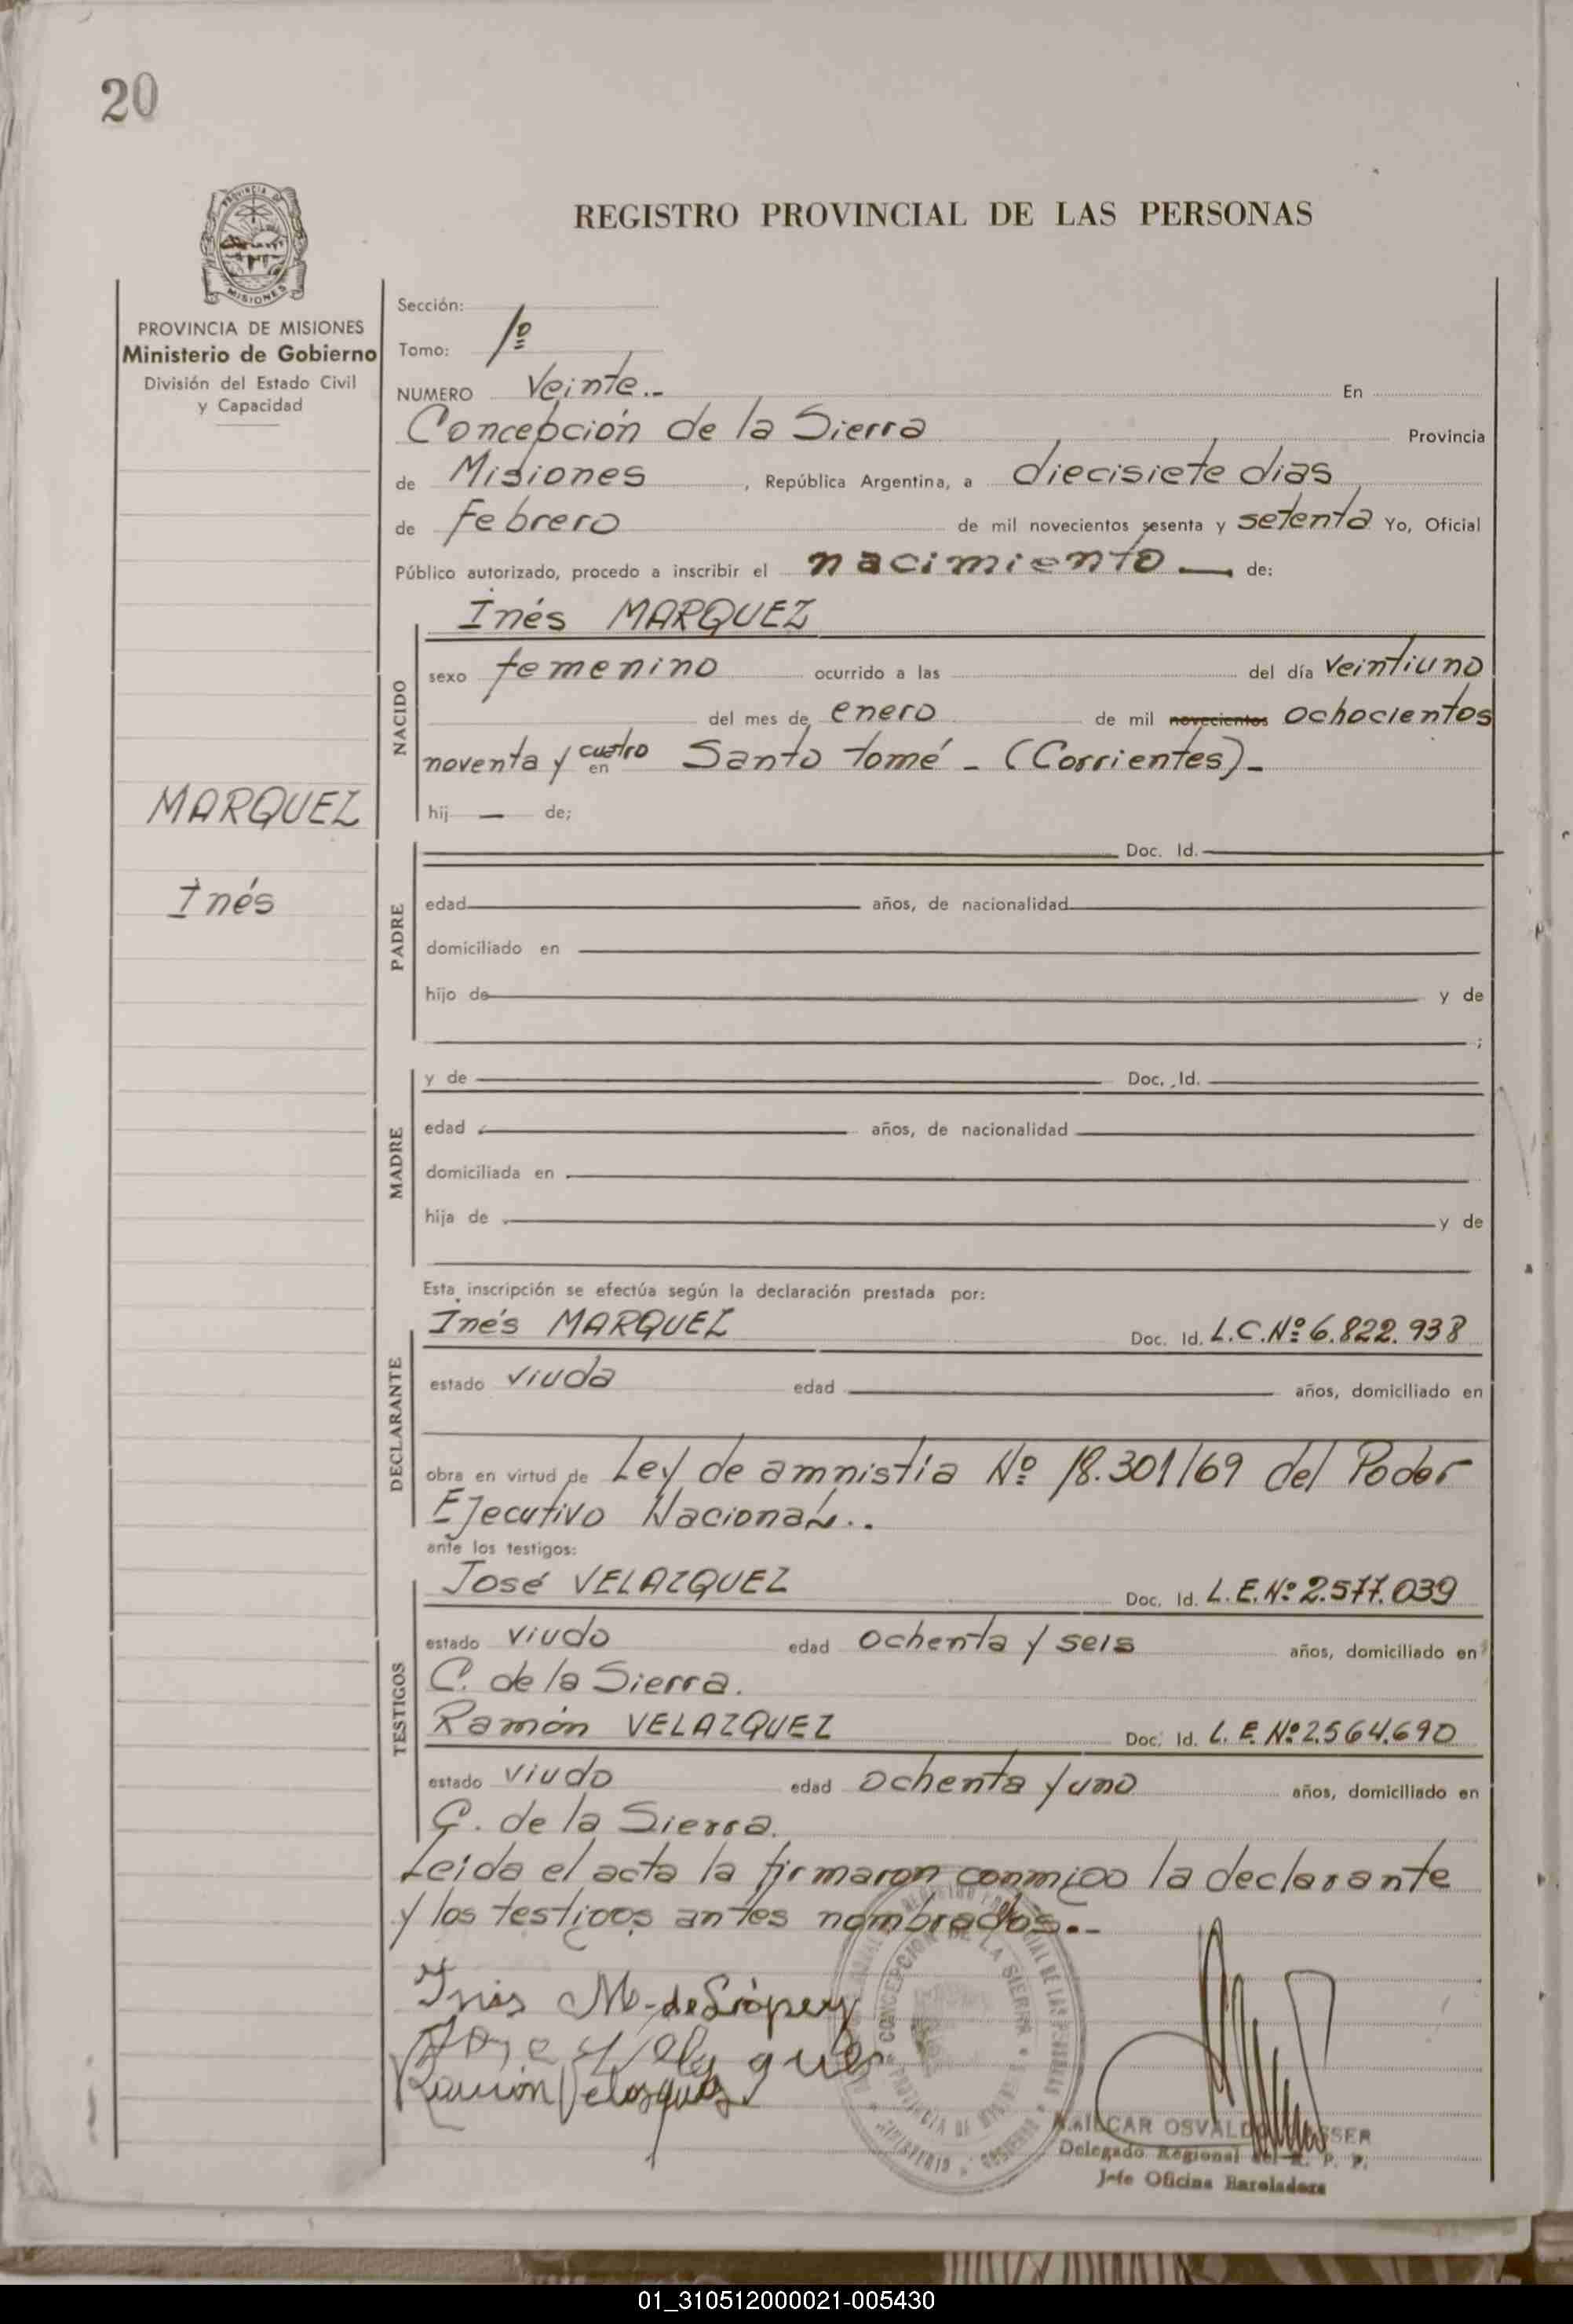 20
PROVINCIA DE
MISIONES
PROVINCIA DE MISIONES
Ministerio de Gobierno
División del Estado Civil
y Capacidad
MARQUEZ
Inés
REGISTRO PROVINCIAL DE LAS PERSONAS
Sección:
Tomo: 1º
NUMERO Veinte.- En
Concepción de la Sierra Provincia
de Misiones, República Argentina, a diecisiete dias
de febrero de mil novecientos sesenta y setenta Yo, Oficial
Público autorizado, procedo a inscribir el nacimiento — de:
Inés MARQUEZ
NACIDO
sexo femenino ocurrido a las del día veintiuno
del mes de enero de mil novecientos ochocientos
noventa y cuatro en Santo tomé - (Corrientes)-
hij — de;
PADRE
Doc. Id.
edad años, de nacionalidad
domiciliado en
hijo de y de
;
MADRE
y de Doc. Id.
edad años, de nacionalidad
domiciliada en
hija de y de
Esta inscripción se efectúa según la declaración prestada por:
DECLARANTE
Inés MARQUEZ Doc. Id. L.C.Nº 6.822.938
estado viuda edad años, domiciliado en
obra en virtud de Ley de amnistia Nº 18.301/69 del Poder
Ejecutivo Nacional..
ante los testigos:
TESTIGOS
José VELAZQUEZ Doc. Id. L.E.Nº 2.577.039
estado viudo edad ochenta y seis años, domiciliado en
C. de la Sierra.
Ramón VELAZQUEZ Doc. Id. L.E.Nº 2.564.690
estado viudo edad ochenta y uno años, domiciliado en
C. de la Sierra.
Leida el acta la firmaron conmigo la declarante
y los testigos antes nombrados.-
Inés M. de López
Jose Velazques
Ramón Velasquez
CONCEPCION DE LA SIERRA
OSVALDO
Delegado Regional del R. P. P.
Jefe Oficina
01_310512000021-005430